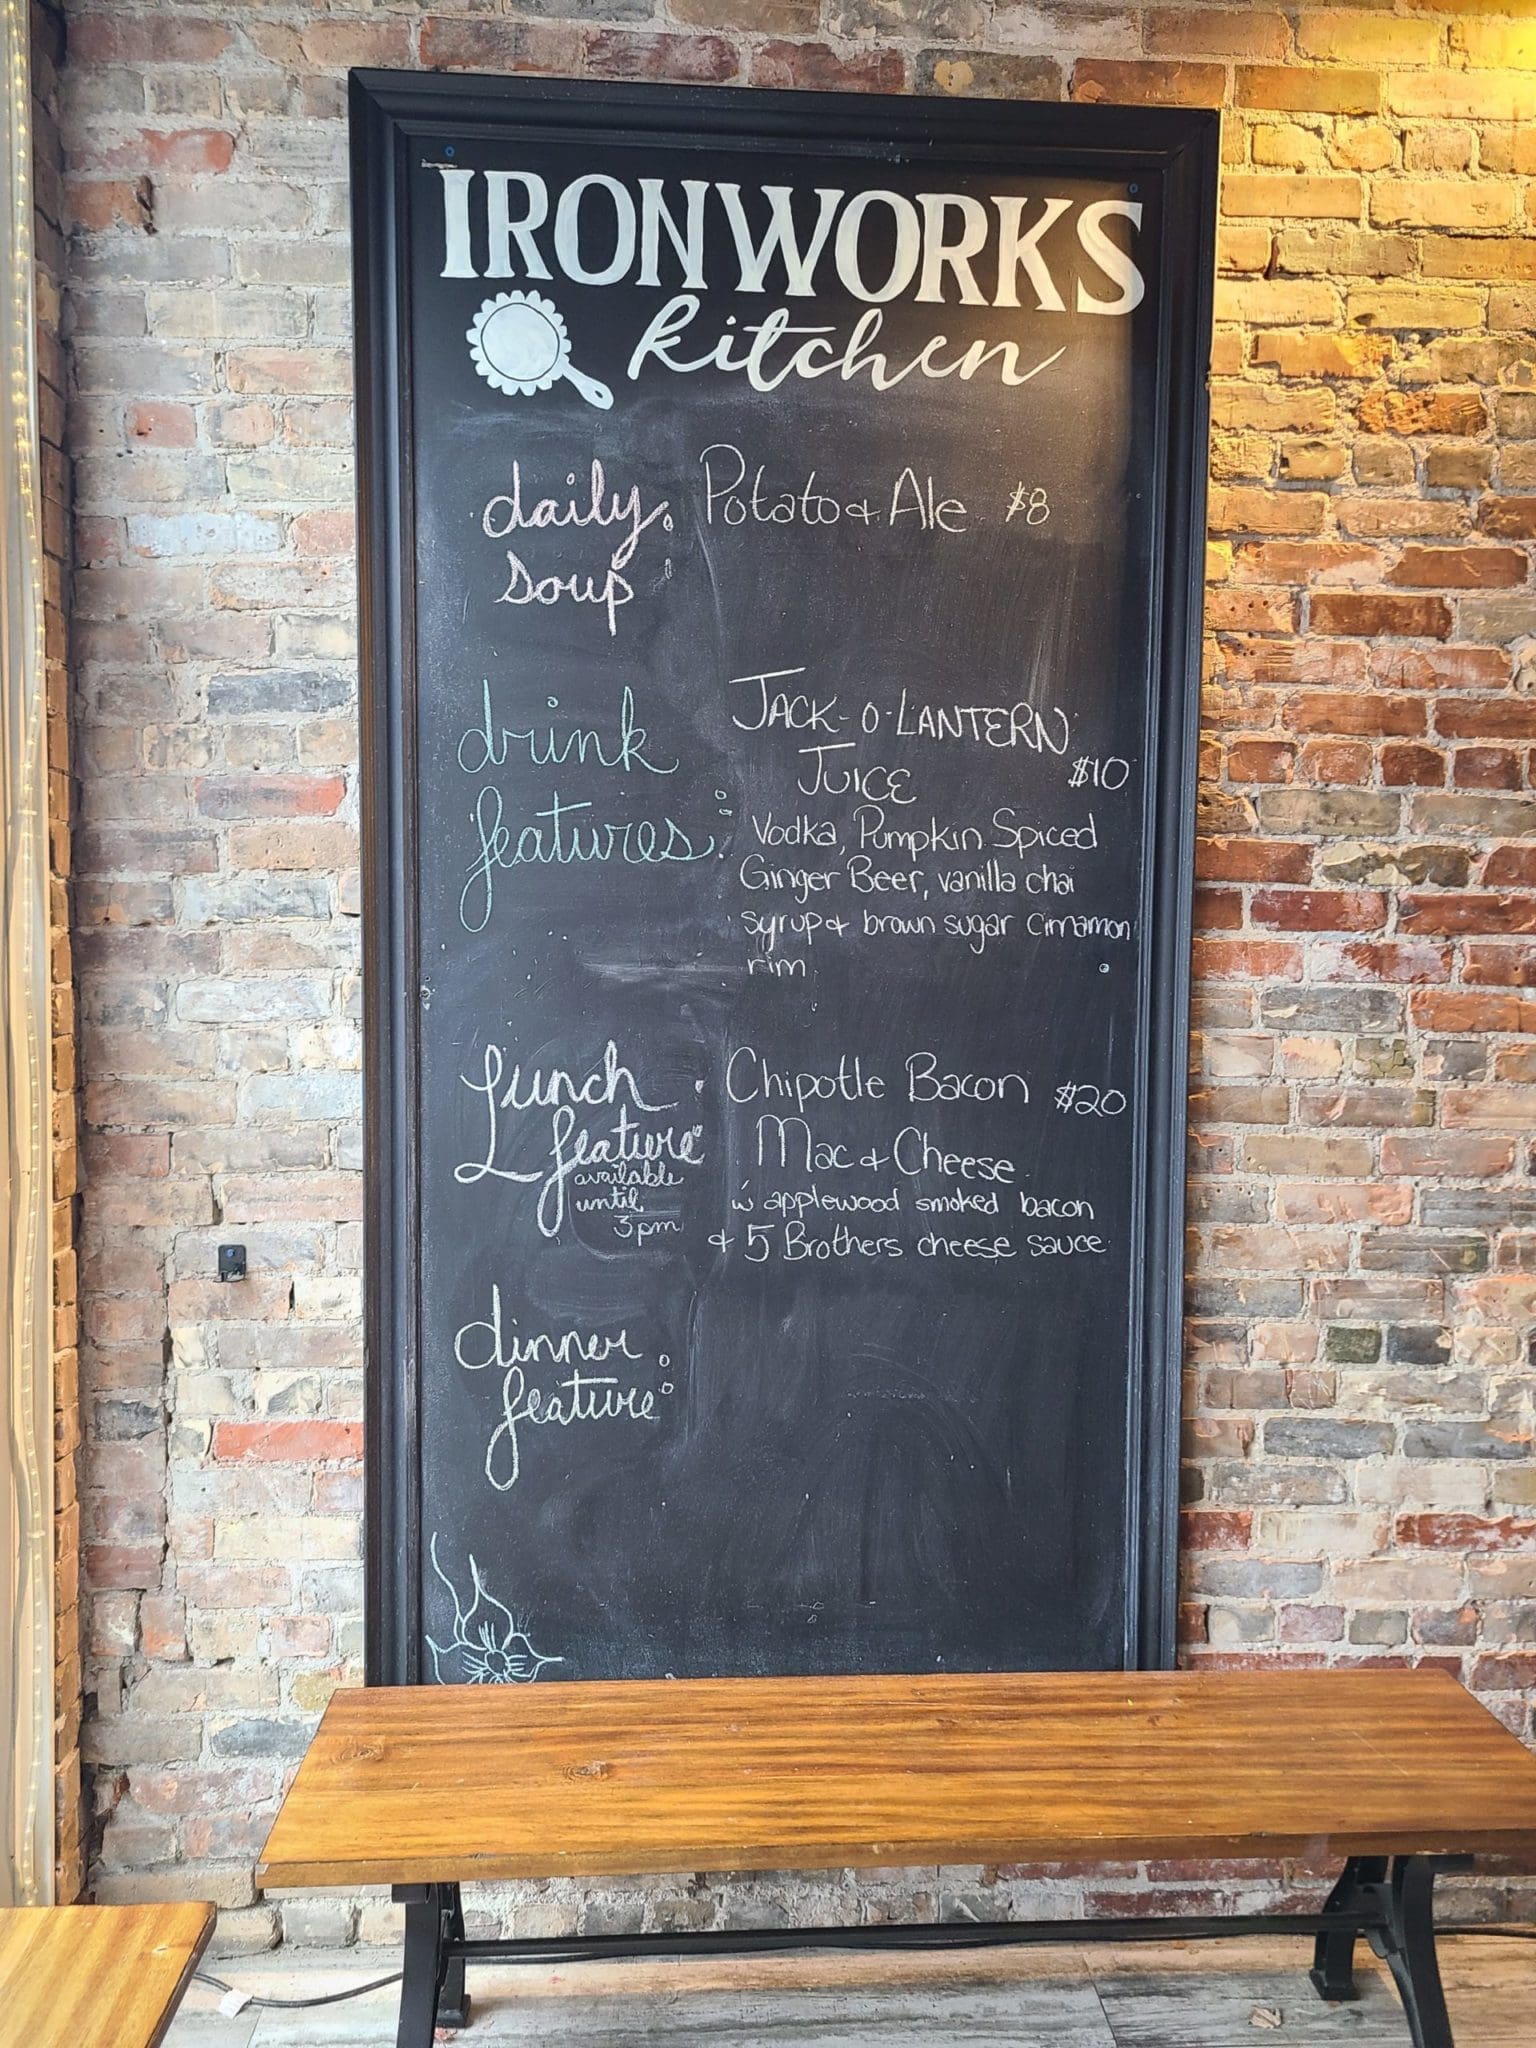 IRONWORKS
kitchen
daily soup: Potato & Ale $8
drink features:
JACK-O-LANTERN
JUICE $10
Vodka, Pumpkin Spiced
Ginger Beer, vanilla chai
syrup & brown sugar cinnamon
rim
Lunch feature:
available
until
3pm
Chipotle Bacon $20
Mac & Cheese
w applewood smoked bacon
& 5 Brothers cheese sauce
dinner
feature: